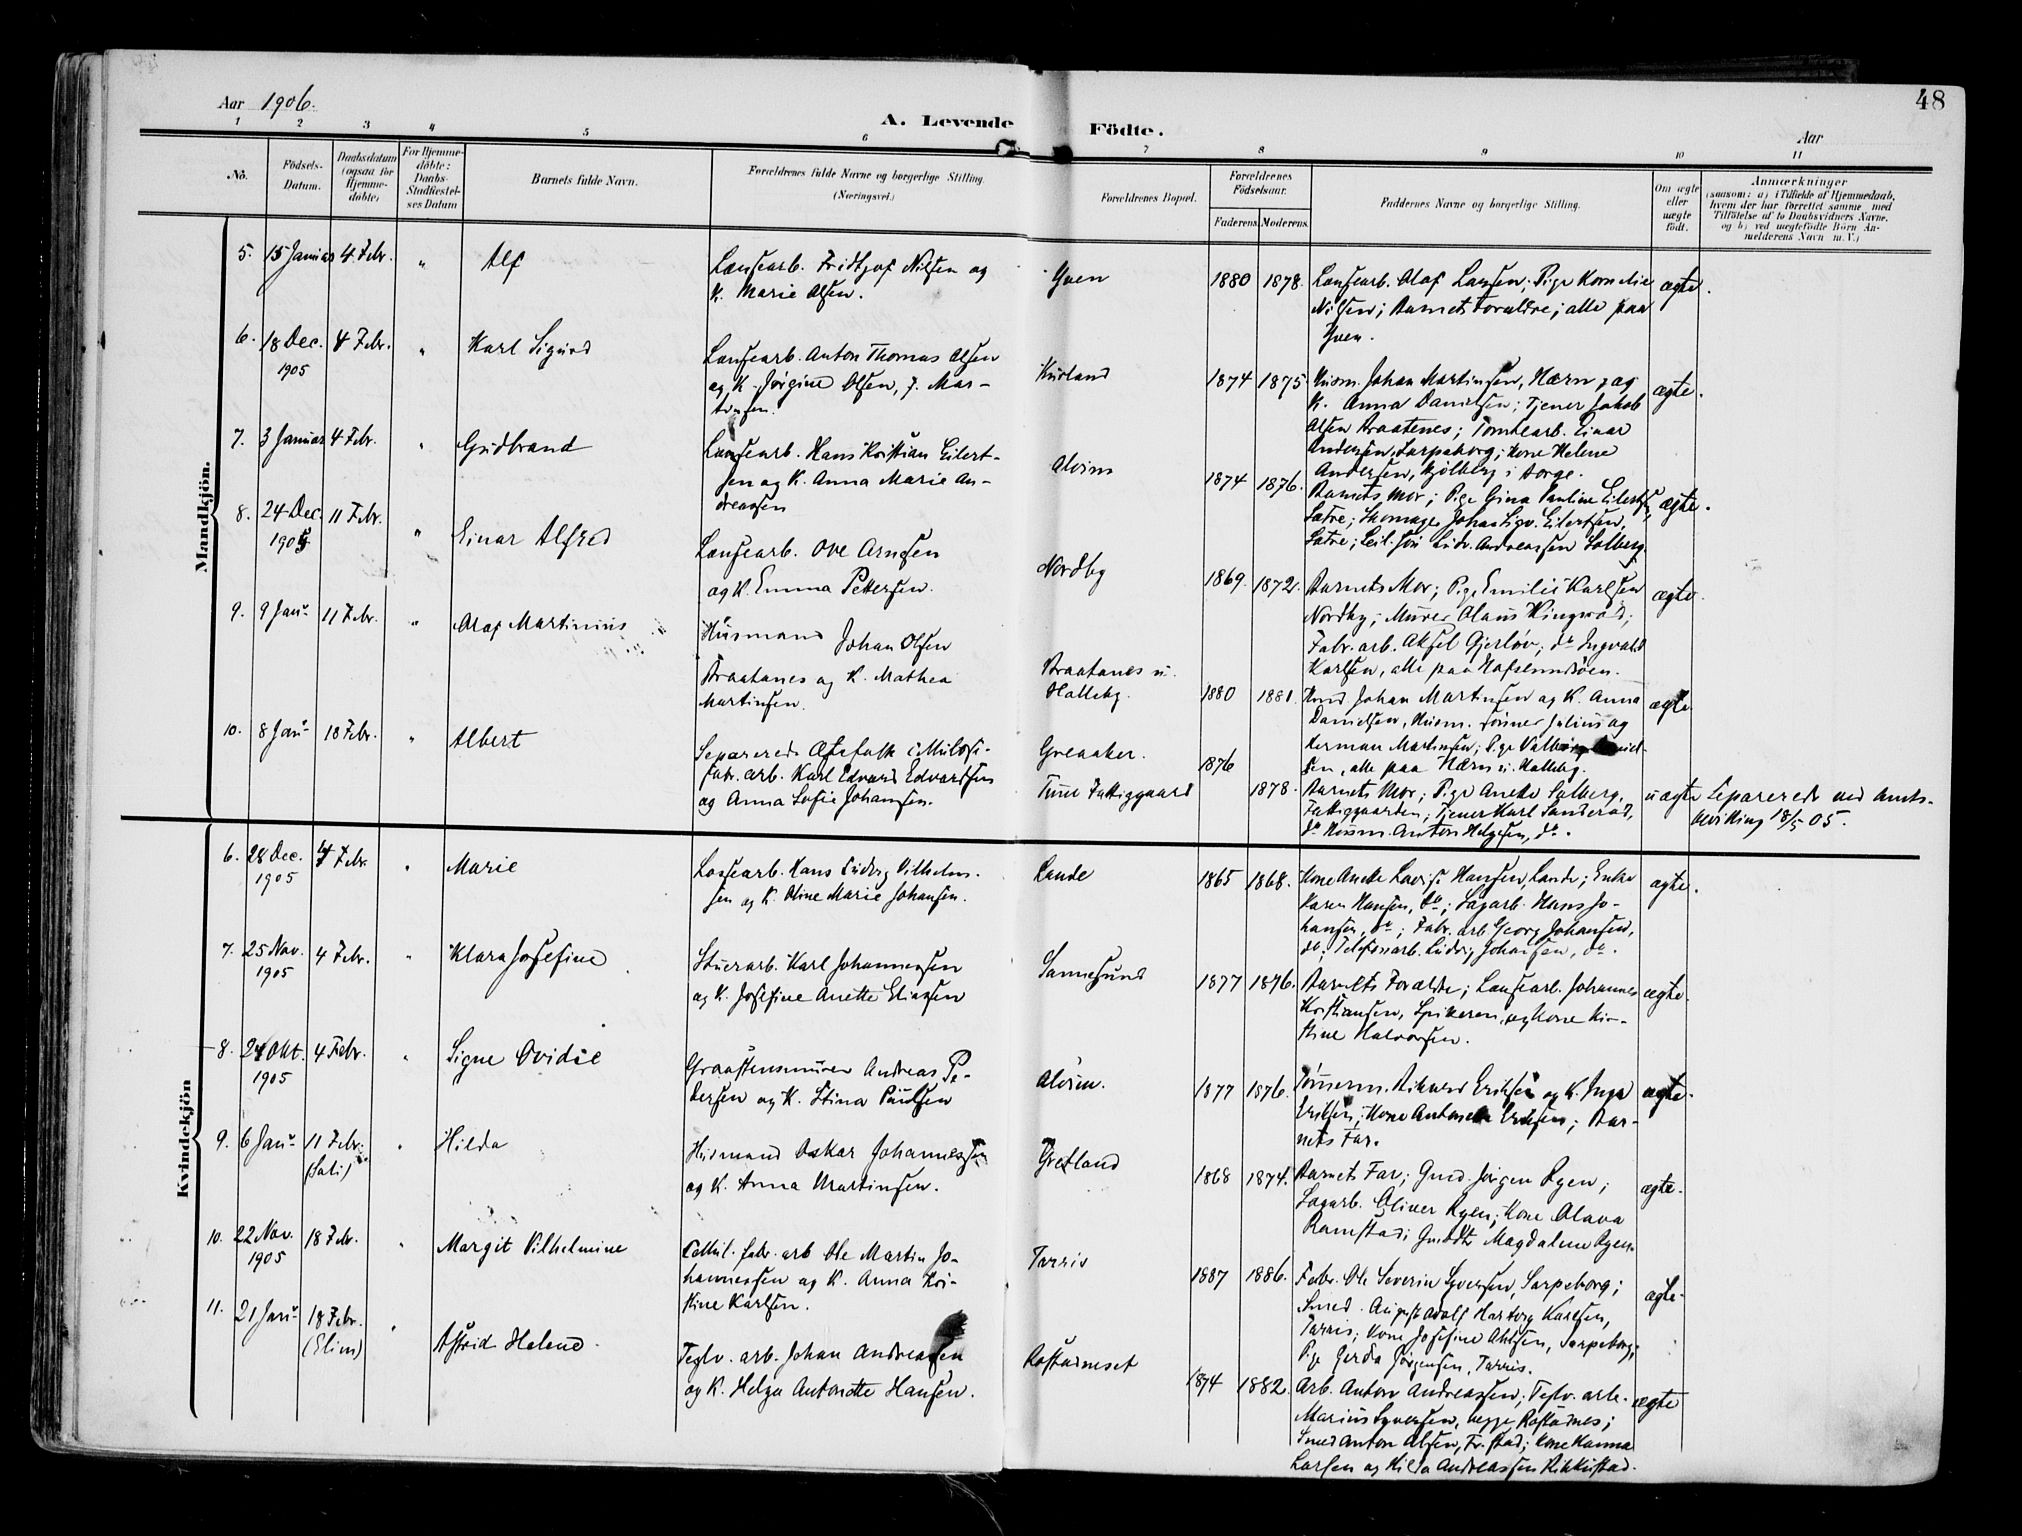 48
Aar 1906.
A. Levende Födte.
Aar
1 2 3 4 5 6 7 8 9 10 11
No.
Födsels-Datum.
Daabsdatum (ogsaa for Hjemme-döbte)
For Hjemme-döbte: Daabs-Stadfæstel-ses Datum
Barnets fulde Navn.
Forældrenes fulde Navne og borgerlige Stilling. (Næringsvei.)
Forældrenes Bopæl.
Forældrenes Födselsaar.
Faderens. Moderens.
Faddernes Navne og borgerlige Stilling.
Om ægte eller uægte födt.
Anmærkninger
(saasom: a) i Tilfælde af Hjemmedaab,
hvem der har forrettet samme med
Tilföielse af to Daabsvidners Navne.
og b) ved uægtefödte Börn An-
melderens Navn m. V.)
Mandkjön.
5. 15 Januar 4 Febr. " Alf
Løusearb. Fridtjof Nilsen og
K. Marie Olsen.
Yven 1880 1878.
Løusearb. Olaf Larsen; Pige Kornelie
Nilsen; Barnets Forældre; alle paa
Yven.
ægte.
6. 18 Dec. 1905 4 Febr. " Karl Sigurd
Løusearb. Anton Thomas Olsen
og K. Jørgine Olsen, f. Mar-
tinsen.
Kurland 1874 1875
Husm. Johan Martinsen, Hærn, og
K. Anna Danielsen; Tjener Jakob
Olsen Braatenes; Tomtearb. Einar
Andersen, Sarpsborg; Kone Helene
Andersen, Kjølberg i Borge.
ægte.
7. 3 Januar 4 Febr. " Gudbrand
Løusearb. Hans Kristian Eilert-
sen og K. Anna Marie An-
dreassen
Alvim 1874 1876.
Barnets Mor; Pige Gina Pauline Eilertsen,
Sætre; Skomager Johan Sigv. Eilertsen,
Sætre; Andreassen Solberg.
ægte.
8. 24 Dec. 1905 11 Febr. " Einar Alfred
Løusearb. Ove Arnesen
og K. Emma Pettersen.
Nordby 1869. 1872.
Barnets Mor; Pige Emilie Karlsen
Nordby; Murer Olaus Kingsrød;
Fabr. arb. Aksel Gjerløv; do Ingvald
Karlsen, alle paa Hafslundsøen.
ægte.
9. 9 Janr 11 Febr. " Olaf Martinius
Husmand Johan Olsen
Braatanes og K. Mathea
Martinsen.
Braatanes u. Halleby. 1880 1881.
Husm. Johan Martinsen og K. Anna
Danielsen, Husm. sønner Julius og
Herman Martinsen; Pige Valborg Daniel-
sen, alle paa Hærn u. Halleby.
ægte.
10. 8 Janr 18 Febr. " Albert
Separerede Ægtefolk Cellulose-
fabr. arb. Karl Edvard Edvardsen
og Anna Sofie Johansen.
Greaaker. 1876
Tune Fattiggaard 1878.
Barnets Mor; Pige Anette Solberg,
Fattiggaarden; Tjener Karl Sanderød,
do Husm. Anton Helgesen, do.
uægte
Separerede ved Amts-
bevilling 18/5 05.
Kvindekjön
6. 28 Dec. 1905 4 Febr. " Marie
Lossearb. Hans Ludvig Vilhelm-
sen og K. Oline Marie Johansen.
Lande 1865 1868.
Kone Anette Lovise Hansen, Lande; Enke
Karen Hansen, do; Sagarb. Hans Jo-
hansen, do; Fabr. arb. Georg Johansen,
do; Telefonarb. Ludvig Johansen, do.
ægte.
7. 25 Nov. 1905 4 Febr. " Klara Josefine
Stuerarb. Karl Johannessen
og K. Josefine Anette Eliassen
Sannesund 1877 1876.
Barnets Forældre; Løusearb. Johannes
Kristiansen, Spikeren, og Kone Kir-
stine Halvorsen.
ægte.
8. 24 Okt. 1905 4 Febr. " Signe Ovidie
Graastensmurer Andreas Pe-
dersen og K. Stina Paulsen
Alvim. 1877 1876.
Tømmerm. Rikard Eriksen og K. Inga
Eriksen; Kone Antonette Eriksen; Bar-
nets Far.
ægte.
9. 6 Janr 11 Febr. (Sol:) " Hilda
Husmand Oskar Johannessen
og K. Anna Martinsen.
Gretland 1868 1874.
Barnets Far; Gmd. Jørgen Ryen;
Sagarb. Oliver Ryen; Kone Olava
Ramstad; Gmddtr Magdalene Ryen.
ægte.
10. 22 Nov. 1905 18 Febr. " Margit Vilhelmine
Cellul. fabr. arb Ole Martin Jo-
hannessen og K. Anna Kri-
stine Karlsen.
Tarris 1887 1886.
Fabr. Ole Severin Syversen, Sarpsborg;
Smed August Adolf Hartvig Karlsen,
Tarris; Kone Josefine Ahlsen, Sarpsborg;
Pige Gerda Jørgensen, Tarris.
ægte.
11. 21 Janr 18 Febr. (Elim) " Astrid Helene.
Teglv. arb. Johan Andreassen
og K. Helga Antonette Hansen.
Rostadneset 1874 1882.
Arb. Anton Andreassen; Teglv. arb.
Marius Syversen, begge Rostadnes;
Smed Anton Olsen, Fr. stad; Kone Hanna
Larsen og Hilda Andreassen
ægte